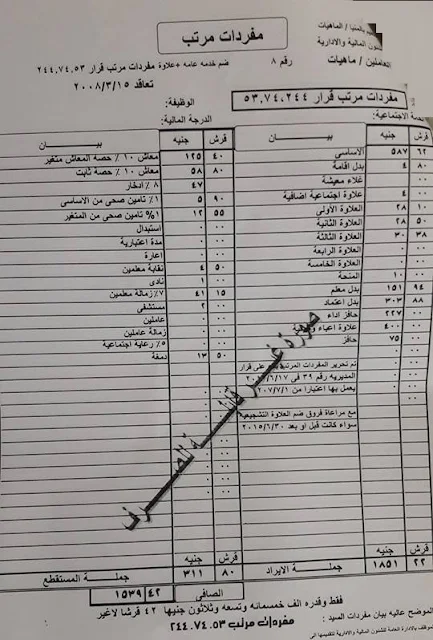 بالمنيا / الماهيات
المالية والادارية
العاملين / ماهيات
مفردات مرتب
رقم ٨ ضم خدمه عامه +علاوة مفردات مرتب قرار ٢٤٤.٧٤.٥٣
تعاقد ٢٠٠٨/٣/١٥
مفردات مرتب قرار ٥٣.٧٤.٢٤٤
الوظيفة:
الاجتماعية:
الدرجة المالية:
قرش جنيه بيــــان قرش جنيه بيــــان
٦٢ ٥٨٧ الاساسى ٤٠ ١٢٥ معاش ١٠٪ حصه المعاش متغير
٨٠ ٤ بدل اقامة ٨٠ ٥٨ معاش ١٠٪ حصة ثابت
٠٠ ٠ غلاء معيشة ٤٧ ٨٪ ادخار
٠٠ ٤ علاوة اجتماعية اضافية ٩٠ ٥ ١٪ تامين صحى من الاساسى
١٠ ٢٨ العلاوة الأولى ٥٥ ١٢ ١٪ تامين صحى من المتغير
٥٠ ٢٨ العلاوة الثانية استبدال
٣٨ ٣٠ العلاوة الثالثة مدة اعتبارية
العلاوة الرابعة اعارة
العلاوة الخامسة ٥٠ ٤ نقابة معلمين
٠٠ ١٠ المنحة ١ نادى
٩٤ ١٥١ بدل معلم ٤١ ١٥ ٧٪ زمالة معلمين
٨٨ ٣٠٣ بدل اعتماد ٢ مستشفى
٠٠ ٢٢٧ حافز اداء عاملين
٠٠ ٤٠٠ علاوة اعباء زمالة عاملين
٠٠ ٧٥ حافز ٥٪ رعاية اجتماعية
٥٠ ١٣ دمغة
تم تحرير المفردات المرتب على قرار
المديريه رقم ٣٩ فى
يعمل بها اعتبارا من
مع مراعاة فروق ضم العلاوة التشجيعية
سواء كانت قبل او بعد ٢٠١٥/٦/٣٠
صورة غير قابلة للصرف
قرش جنيه
٢٢ ١٨٥١ جملـــة الايراد
قرش جنيه
٨٠ ٣١١ جملـــة المستقطع
٤٢ ١٥٣٩ الصافى
فقط وقدره الف خمسمائه وتسعه وثلاثون جنيها ٤٢ قرشا لاغير
الموضح عاليه بيان مفردات السيد : مفردات مرتب ٢٤٤.٧٤.٥٣
بالادارة العامة للشئون المالية والادارية لتقديمها الى